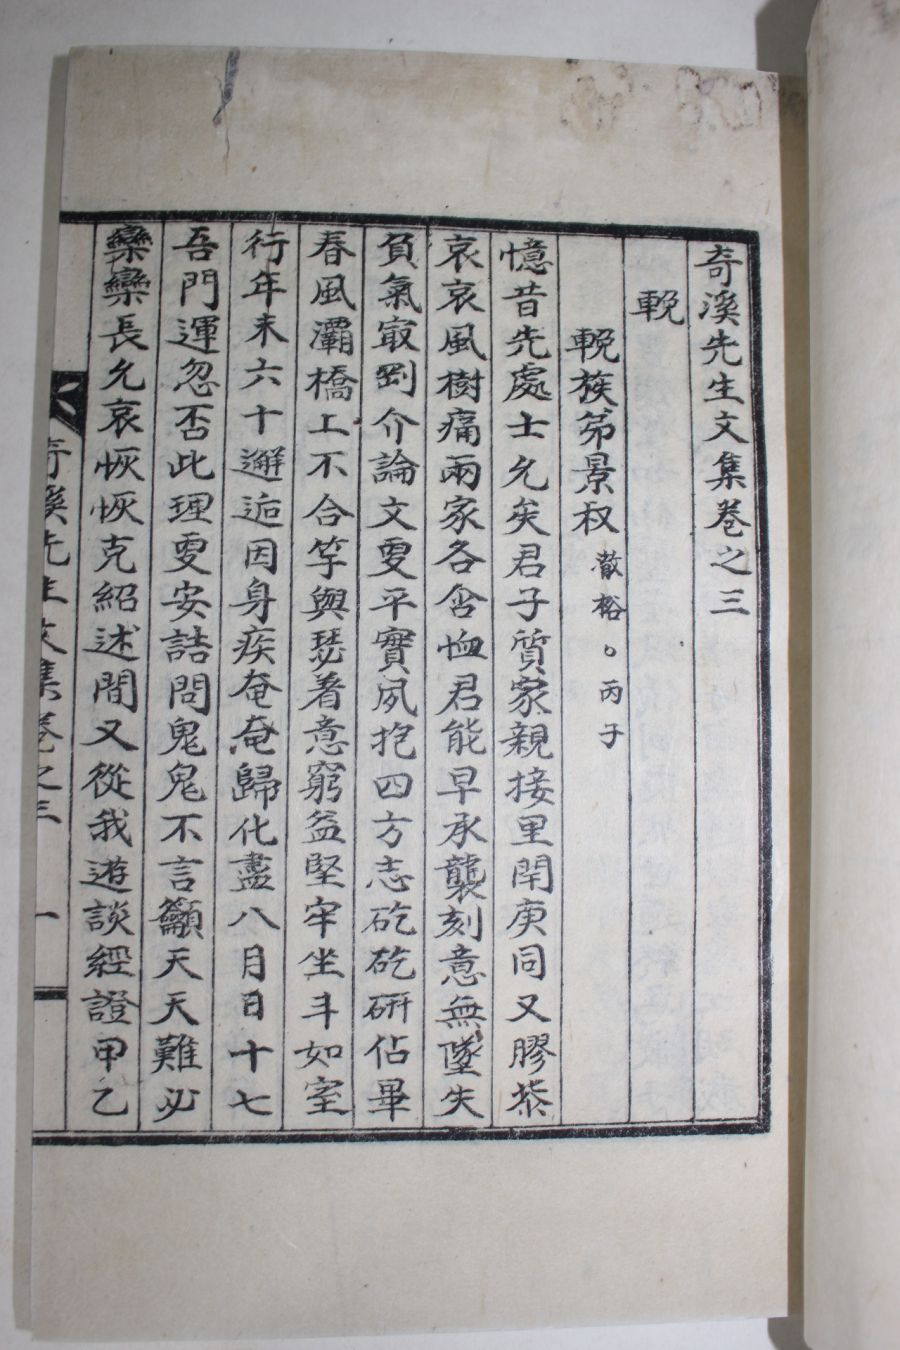 奇溪先生文集卷之三
輓
輓族弟景叔 澈裕〻丙子
憶昔先處士允矣君子質家親接里閈庚同又膠桼
哀哀風樹痛兩家各含恤君能早承襲刻意無墜失
負氣㝡剛介論文更平實夙抱四方志矻矻硏佔畢
春風灞橋上不合竽與瑟着意窮益堅牢坐斗如室
行年未六十邂逅因身疾奄奄歸化盡八月日十七
吾門運忽否此理更安詰問鬼鬼不言籲天天難必
欒欒長允哀恢恢克紹述間又從我遊談經證甲乙
奇溪先生文集卷之三 一